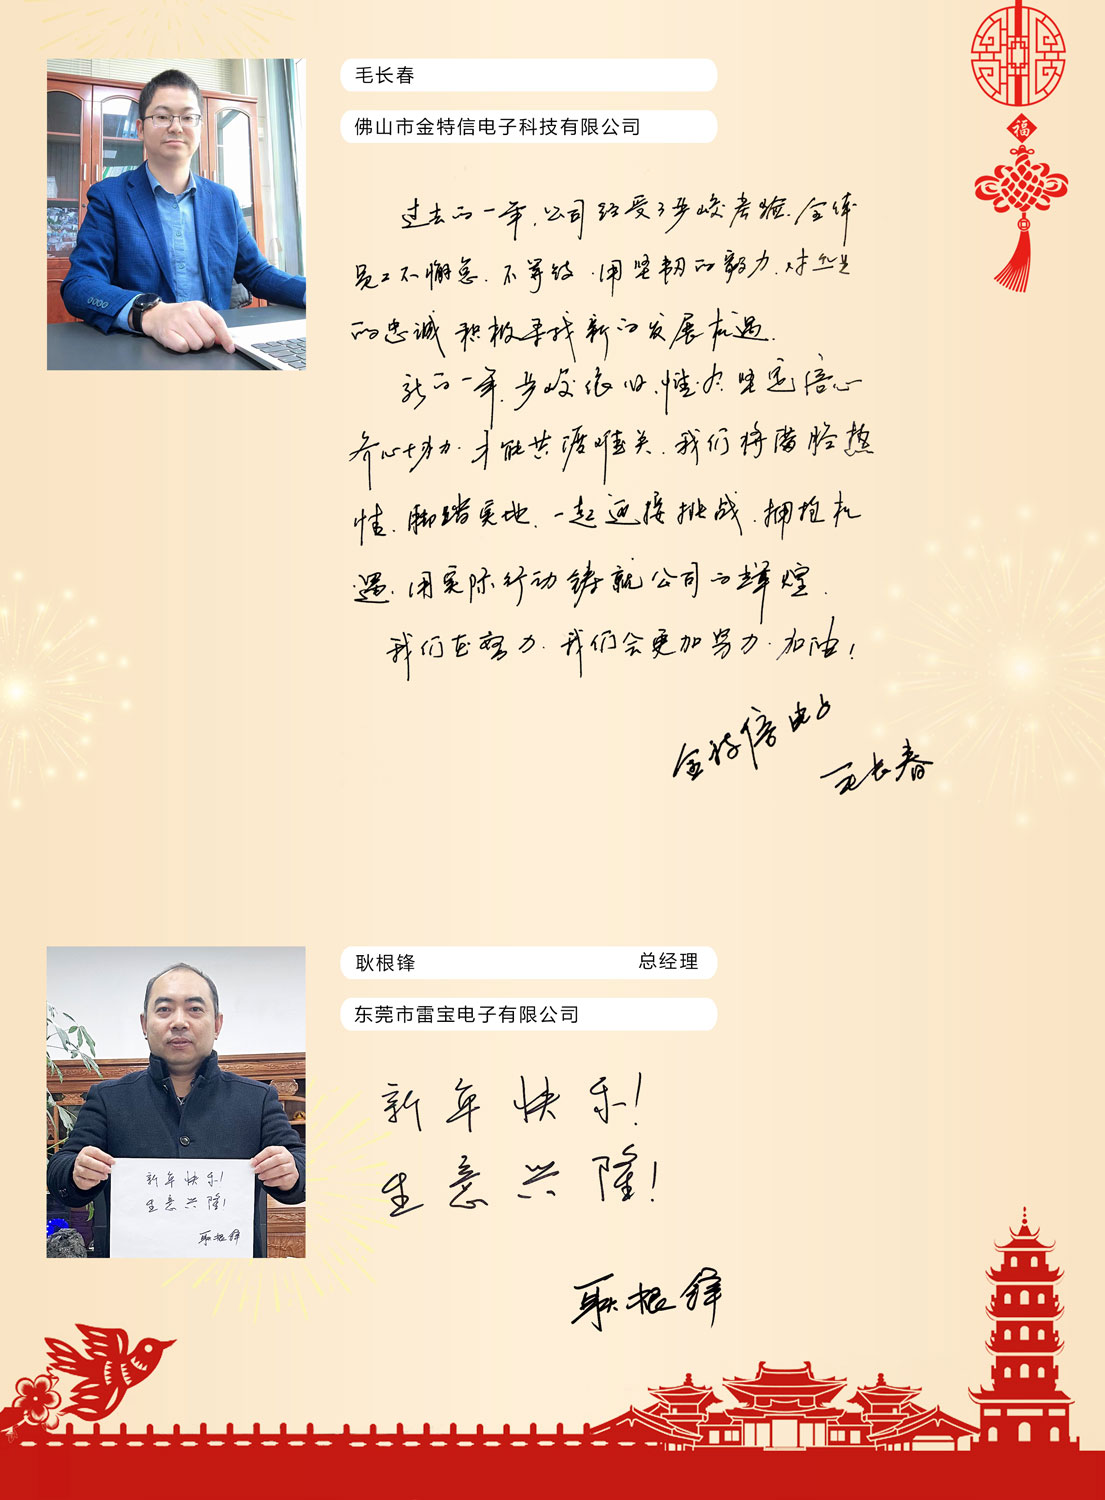 福
毛长春
佛山市金特信电子科技有限公司
过去的一年,公司经受了严峻考验.全体
员工不懈怠.不等待.用坚韧的毅力.对企业
的忠诚 积极寻找新的发展机遇.
新的一年,严峻依旧,惟有坚定信心
齐心协力.才能共渡难关.我们将满腔热
情.脚踏实地.一起迎接挑战.拥抱机
遇.用实际行动铸就公司的辉煌.
我们在努力.我们会更加努力.加油!
金特信电子
毛长春
耿根锋 总经理
东莞市雷宝电子有限公司
新年快乐!
生意兴隆!
耿根锋
新年快乐!
生意兴隆!
耿根锋